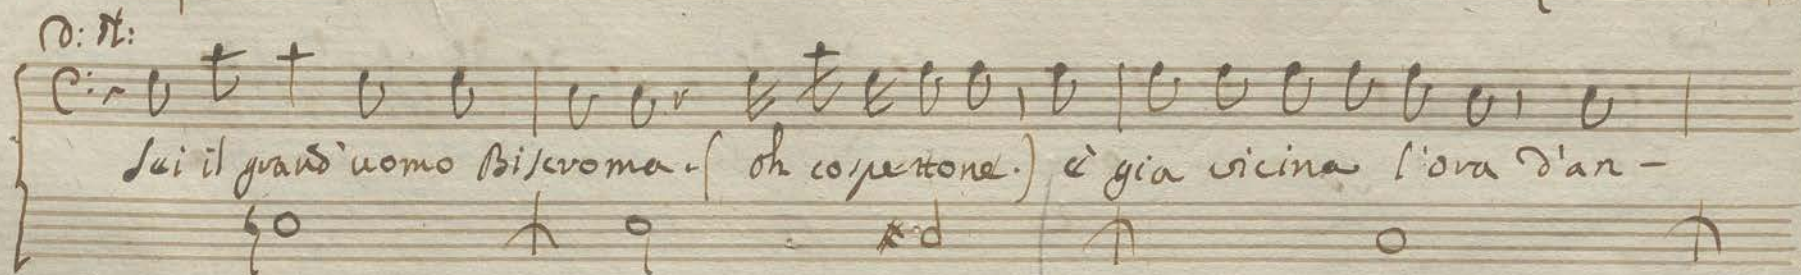 D: St:
Sei il grand'uomo Biscroma. ( oh cospettone. ) è gia vicina l'ora d'an-